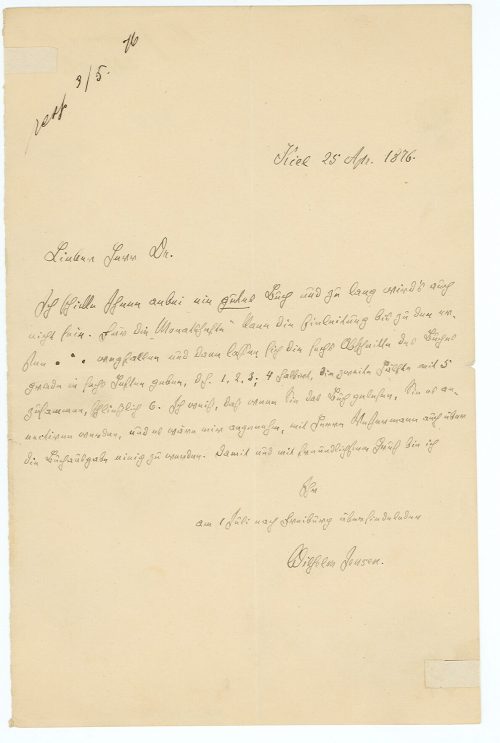 9/5. 76
Kiel 25 Apr. 1876.
Lieber Herr Dr.
Ich schicke Ihnen anbei ein gutes Buch und zu lang wird's auch
nicht sein. Für die „Monatshefte" kann die Einleitung bis zu den er-
sten • • • wegfallen und dann lassen sich die sechs Abschnitte des Buches
gerade in sechs Heften geben, d.h. 1, 2, 3, 4 die zweite Hälfte mit 5
zusammen, schließlich 6. Ich weiß, daß wenn Sie das Buch gelesen, Sie es
werden, und es wäre mir angenehm, mit Herrn Westermann auch über
die Buchausgabe einig zu werden. Damit und mit freundlichstem Gruß bin ich
Ihr
am 1 Juli nach Freiburg übersiedelnder
Wilhelm Jensen.